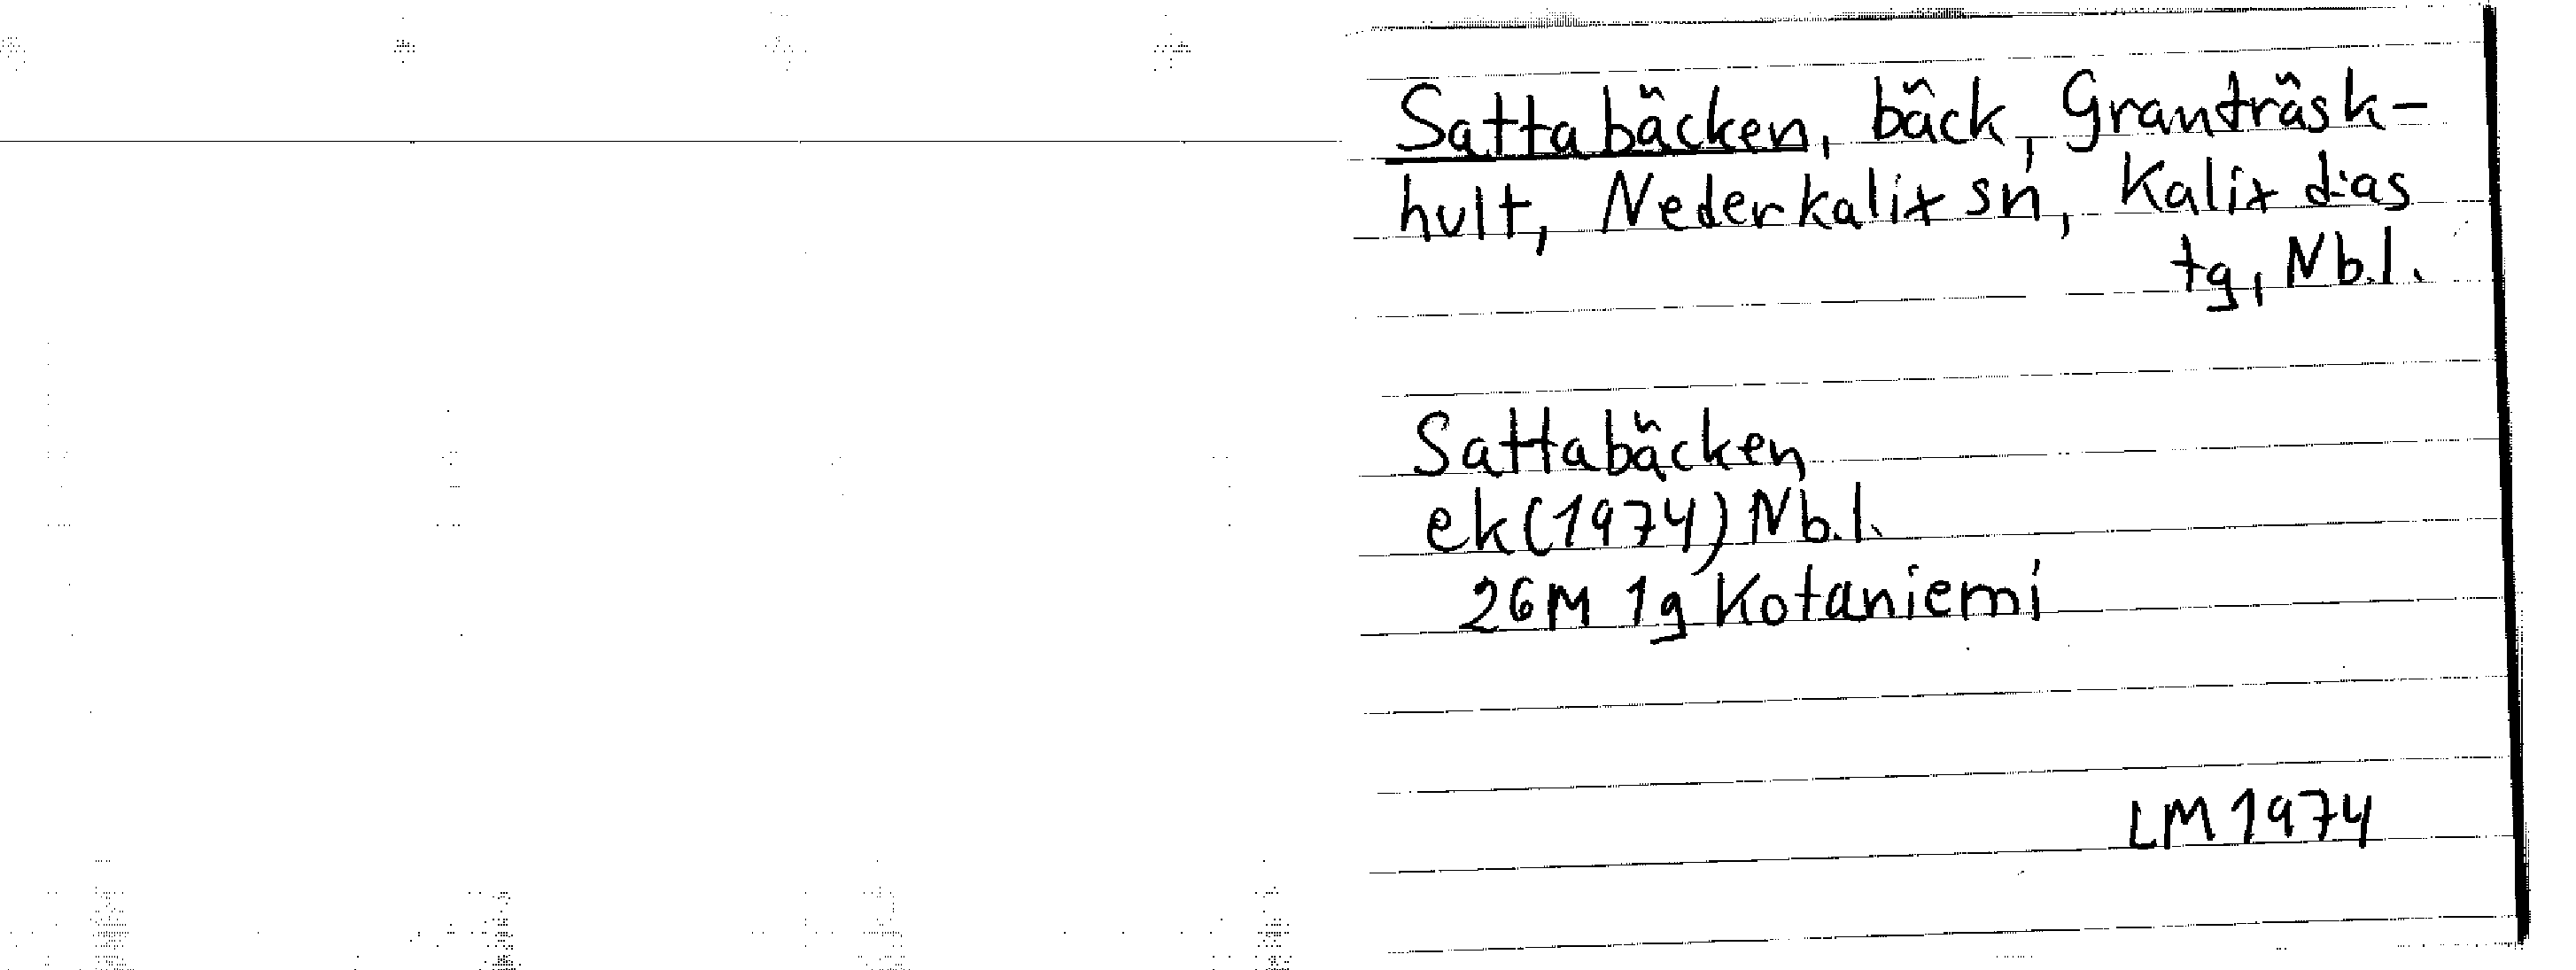 Sattabäcken, bäck, Granträsk-
hult, Nederkalix sn, Kalix d:as
tg, Nb.l.
Sattabäcken
ek (1974) Nb.l.
26M 1g Kotaniemi
LM 1974